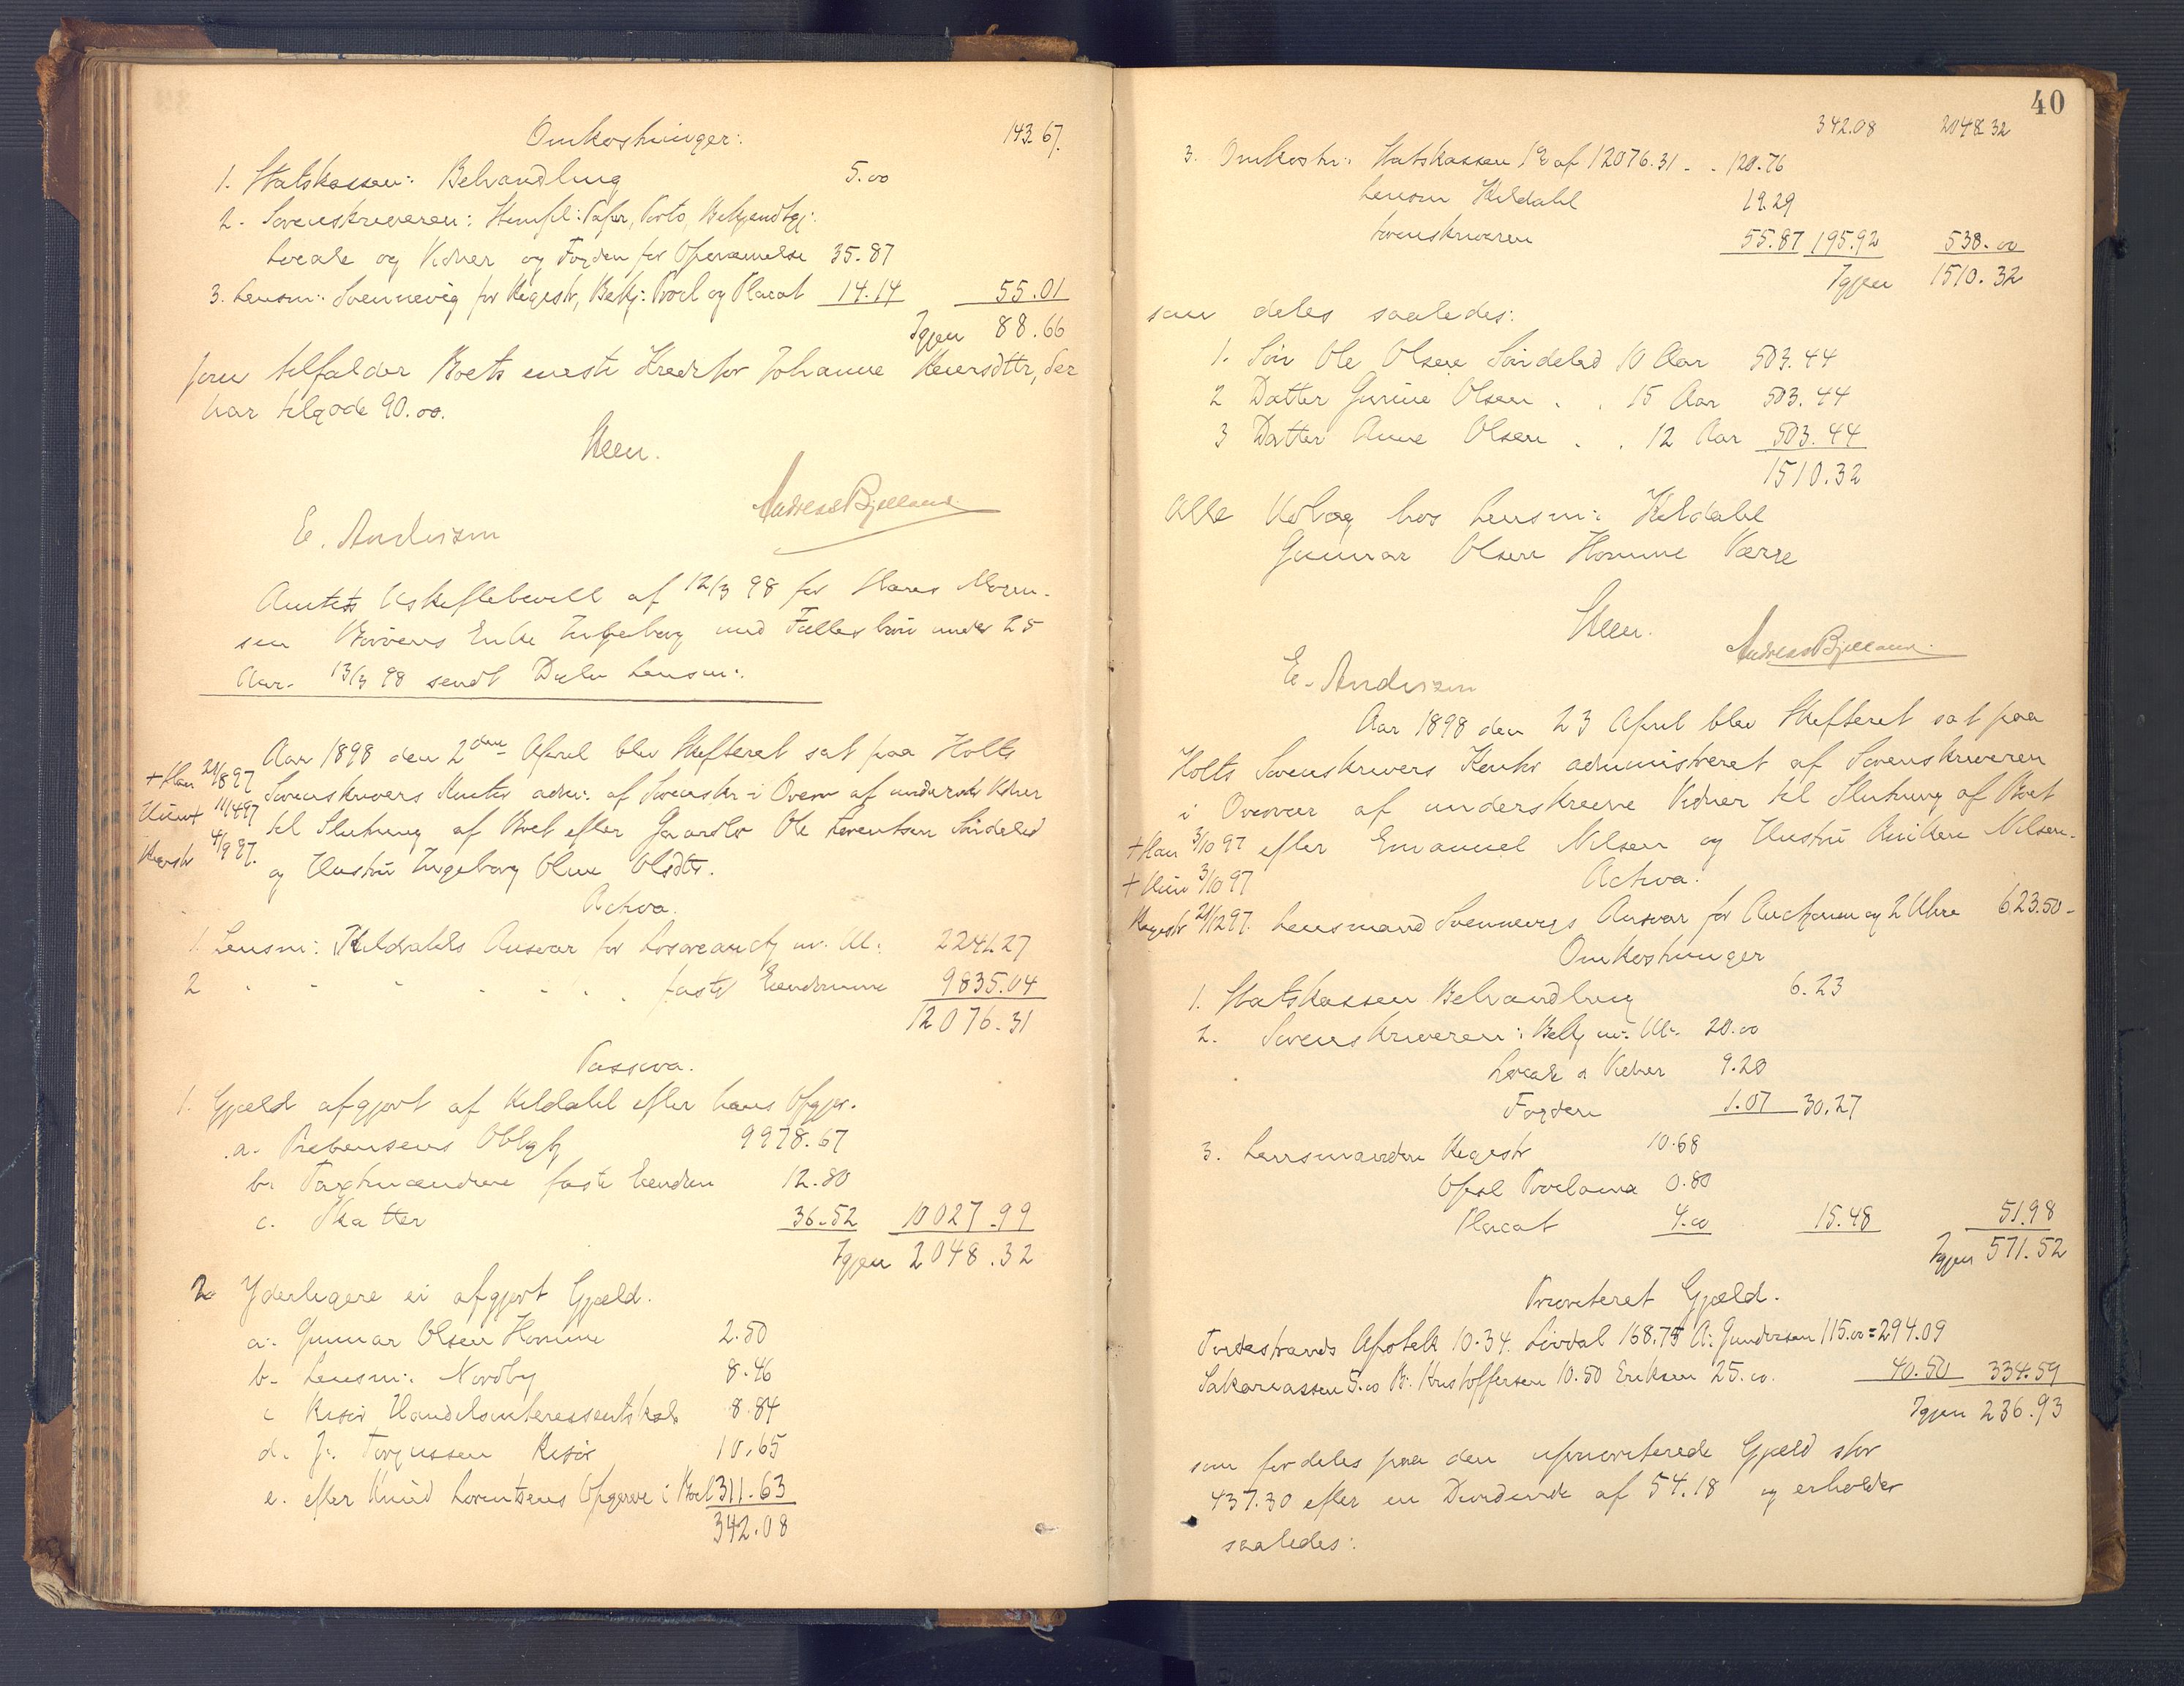 Omkostninger: 143.67.
1. Statskassen: Behandling 5.00
2. Sorenskriveren: Stempl: Papir, Porto, Bekjendtgj:
Locale og Vidner og Fogden for Opnævnelse 35.87
3. Lensm: Svennevig for Registr, Bekj: Procl og Placat 14.14 55.01
Igjen 88.66
som tilfalder Boets eneste Kreditor Johanne Reiersdttr, der
har tilgode 90.00.
Steen.
Andreas Bjelland
E. Andersen
Amtets Uskiftebevill af 12/3 98 for Hans Mogen-
sen Enke Ingeborg med Fællesbørn under 25
Aar. 13/3 98 sendt Lensm:
Aar 1898 den 2den April blev Skifteret sat paa Holts
Sorenskrivers Kontor adm: af Sorenskr i Overv af underskr Vidner
til Slutning af Boet efter Gaardbr Ole Lorentsen Søndeled
og Hustru Ingeborg Oline Olsdtr.
+ Han 21/8 97
Hun + 11/4 97
Registr 4/9 97.
Activa.
1. Lensm: Kildahls Ansvar for Løsøreauctj m. M: 2241.27
2 " " " " " " faste Eiendomme 9835.04
12076.31
Passiva.
1. Gjæld afgjort af Kildahl efter hans Opgjør.
a. Prebensens Obligtj 9978.67
b. Taxtmændene faste Eiendom 12.80
c. Skatter 36.52 10027.99
Igjen 2048.32
2. Yderligere ei afgjort Gjæld.
a. Gunnar Olsen Homme 2.50
b. Lensm: Nordby 8.46
c Risør Handelsinteressentskab 8.84
d. J: Torjussen Risør 10.65
e. efter Knud Lorentsens Opgave i Boet 311.63
342.08
40
342.08 2048.32
3. Omkostn: Statskassen 1% af 12076.31 . . 120.76
Lensm Kildahl 19.29
Sorenskriveren 55.87 195.92 538.00
Igjen 1510.32
som deles saaledes:
1. Søn Ole Olsen Søndeled 10 Aar 503.44
2 Datter Gurine Olsen . . 15 Aar 503.44
3 Datter Anne Olsen . . 12 Aar 503.44
1510.32
Alle Udlæg hos Lensm: Kildahl
Gunnar Olsen Homme Værge
Steen.
Andreas Bjelland.
E. Andersen
Aar 1898 den 23 April blev Skifteret sat paa
Holts Sorenskrivers Kontor administreret af Sorenskriveren
i Overvær af underskrevne Vidner til Slutning af Boet
efter Emanuel Nilsen og Hustru Nilsen.
+ Han 3/10 97
+ Hun 3/10 97
Registr 21/12 97.
Activa.
Lensmand Svennevigs Ansvar for Auctionen og 2 Uhre 623.50
Omkostninger
1. Statskassen Behandling 6.23
2. Sorenskriveren: Bekj m. M. 20.00
Locale & Vidner 9.20
Fogden 1.07 30.27
3. Lensmanden Registr 10.68
Opsl Proclama 0.80
Placat 4.00 15.48 51.98
Igjen 571.52
Prioriteret Gjæld.
Tvedestrands Apotek 10.34. Lindal 168.75 A: Gundersen 115.00 = 294.09
Sakariassen 5.00 B: Kristoffersen 10.50 Eriksen 25.00. 40.50 334.59
Igjen 236.93
som fordeles paa den uprioriterede Gjæld stor
437.30 efter en Dividende af 54.18 og erholder
saaledes: